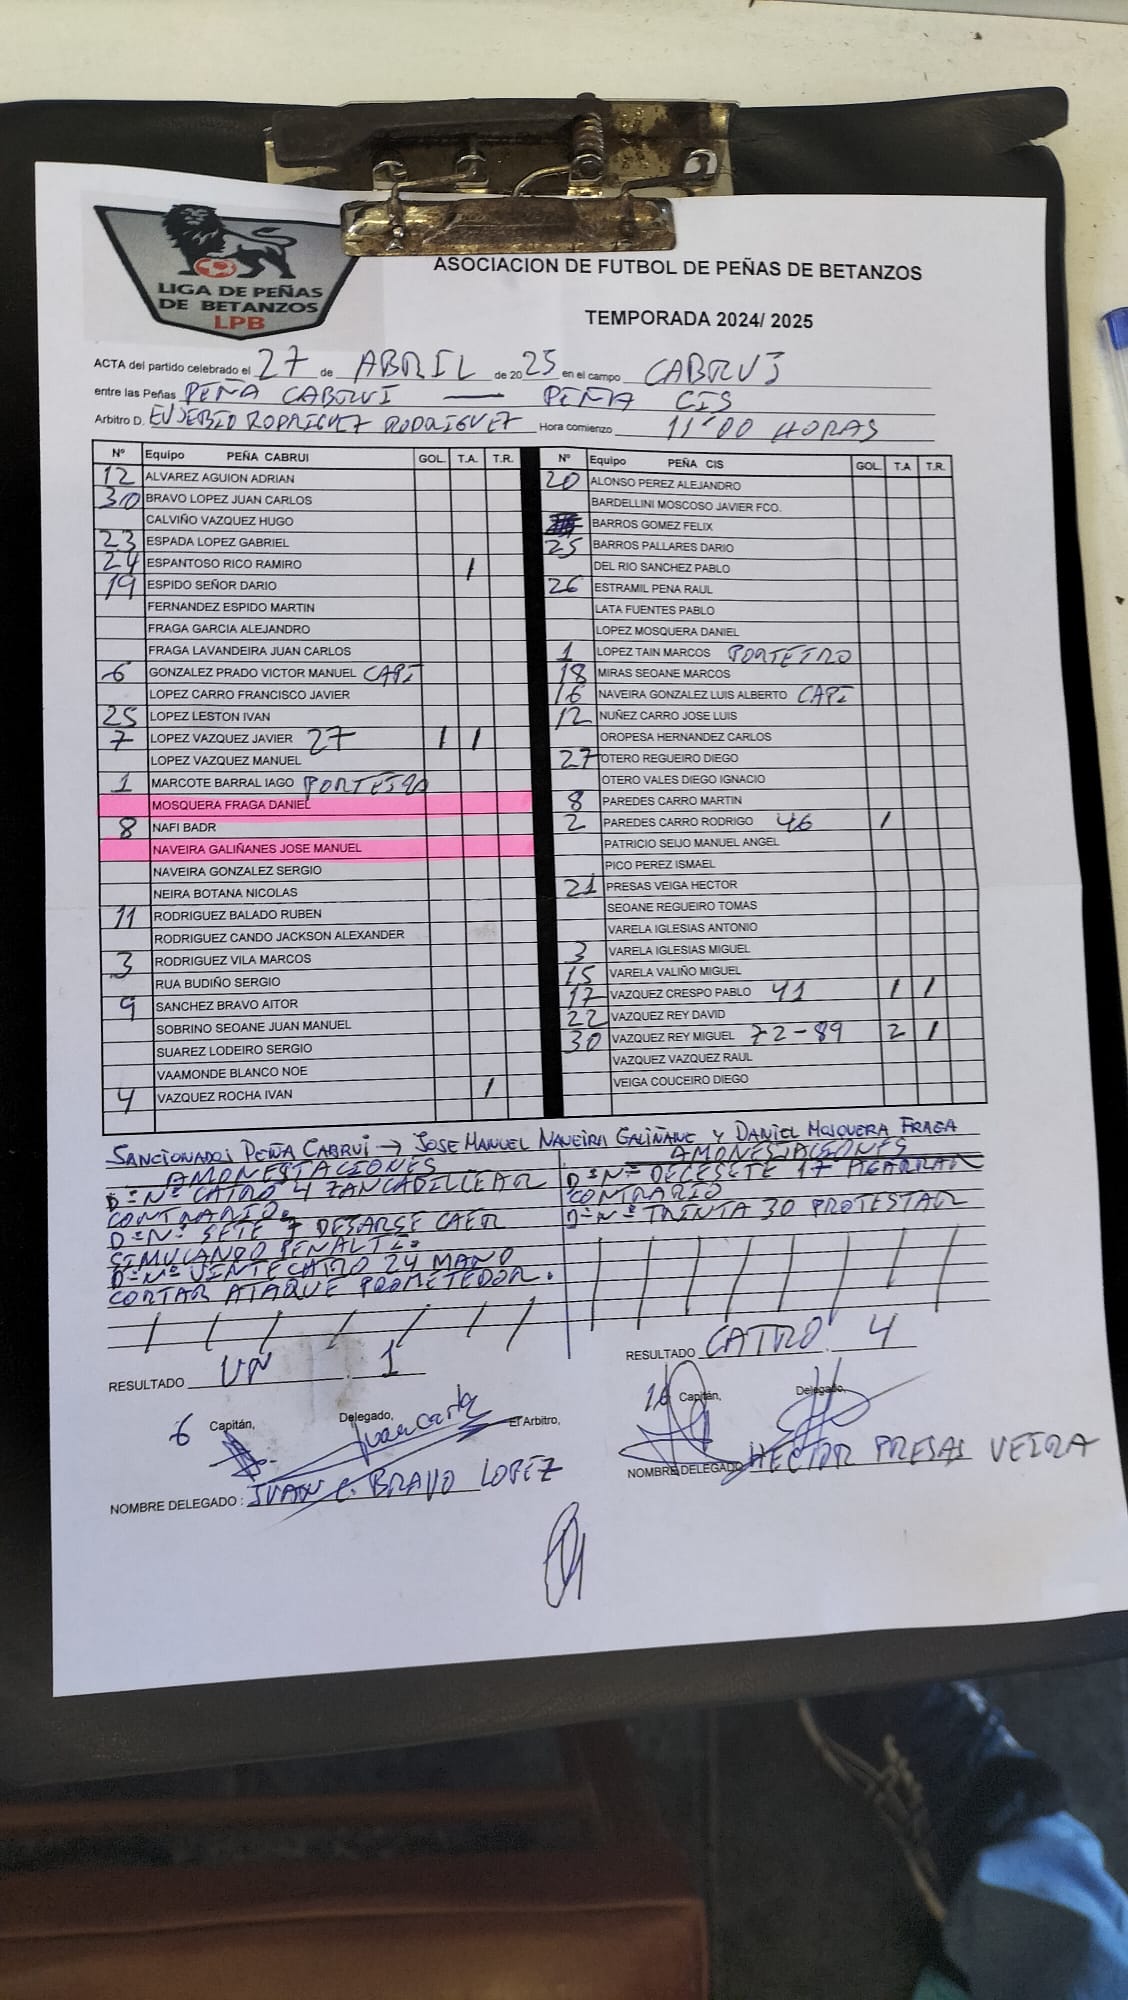 LIGA DE PEÑAS
DE BETANZOS
LPB
ASOCIACION DE FUTBOL DE PEÑAS DE BETANZOS
TEMPORADA 2024/ 2025
ACTA del partido celebrado el 27 de ABRIL de 2025 en el campo CABRUI
entre las Peñas PEÑA CABRUI — PEÑA CIS
Arbitro D. EUSEBIO RODRIGUEZ RODRIGUEZ Hora comienzo 11'00 HORAS
Nº Equipo PEÑA CABRUI GOL. T.A. T.R.
12 ALVAREZ AGUION ADRIAN
30 BRAVO LOPEZ JUAN CARLOS
CALVIÑO VAZQUEZ HUGO
23 ESPADA LOPEZ GABRIEL
24 ESPANTOSO RICO RAMIRO 1
19 ESPIDO SEÑOR DARIO
FERNANDEZ ESPIDO MARTIN
FRAGA GARCIA ALEJANDRO
FRAGA LAVANDEIRA JUAN CARLOS
6 GONZALEZ PRADO VICTOR MANUEL CAPI
LOPEZ CARRO FRANCISCO JAVIER
25 LOPEZ LESTON IVAN
7 LOPEZ VAZQUEZ JAVIER 27 1 1
LOPEZ VAZQUEZ MANUEL
1 MARCOTE BARRAL IAGO PORTEIRO
MOSQUERA FRAGA DANIEL
8 NAFI BADR
NAVEIRA GALIÑANES JOSE MANUEL
NAVEIRA GONZALEZ SERGIO
NEIRA BOTANA NICOLAS
11 RODRIGUEZ BALADO RUBEN
RODRIGUEZ CANDO JACKSON ALEXANDER
3 RODRIGUEZ VILA MARCOS
RUA BUDIÑO SERGIO
9 SANCHEZ BRAVO AITOR
SOBRINO SEOANE JUAN MANUEL
SUAREZ LODEIRO SERGIO
VAAMONDE BLANCO NOE
4 VAZQUEZ ROCHA IVAN 1
Nº Equipo PEÑA CIS GOL. T.A T.R.
20 ALONSO PEREZ ALEJANDRO
BARDELLINI MOSCOSO JAVIER FCO.
BARROS GOMEZ FELIX
25 BARROS PALLARES DARIO
DEL RIO SANCHEZ PABLO
26 ESTRAMIL PENA RAUL
LATA FUENTES PABLO
LOPEZ MOSQUERA DANIEL
1 LOPEZ TAIN MARCOS PORTEIRO
18 MIRAS SEOANE MARCOS
16 NAVEIRA GONZALEZ LUIS ALBERTO CAPI
12 NUÑEZ CARRO JOSE LUIS
OROPESA HERNANDEZ CARLOS
27 OTERO REGUEIRO DIEGO
OTERO VALES DIEGO IGNACIO
8 PAREDES CARRO MARTIN
2 PAREDES CARRO RODRIGO 46 1
PATRICIO SEIJO MANUEL ANGEL
PICO PEREZ ISMAEL
21 PRESAS VEIGA HECTOR
SEOANE REGUEIRO TOMAS
VARELA IGLESIAS ANTONIO
3 VARELA IGLESIAS MIGUEL
15 VARELA VALIÑO MIGUEL
17 VAZQUEZ CRESPO PABLO 41 1 1
22 VAZQUEZ REY DAVID
30 VAZQUEZ REY MIGUEL 72-89 2 1
VAZQUEZ VAZQUEZ RAUL
VEIGA COUCEIRO DIEGO
SANCIONADOS PEÑA CABRUI → JOSE MANUEL NAVEIRA GALIÑANE y DANIEL MOSQUERA FRAGA
AMONESTACIONES
D=Nº CATRO 4 ZANCADILLEAR
CONTRARIO.
D=Nº SETE 7 DEJARSE CAER
SIMULANDO PENALTI.
D=Nº VENTECATRO 24 MANO
CORTAR ATAQUE PROMETEDOR.
AMONESTACIONES
D=Nº DECESETE 17 AGARRAR
CONTRARIO
D=Nº TRINTA 30 PROTESTAR
RESULTADO UN 1
RESULTADO CATRO 4
6 Capitán, Delegado, El Arbitro,
Juan Carlos
16 Capitán, Delegado,
NOMBRE DELEGADO : JUAN C. BRAVO LOPEZ
NOMBRE DELEGADO HECTOR PRESAS VEIRA